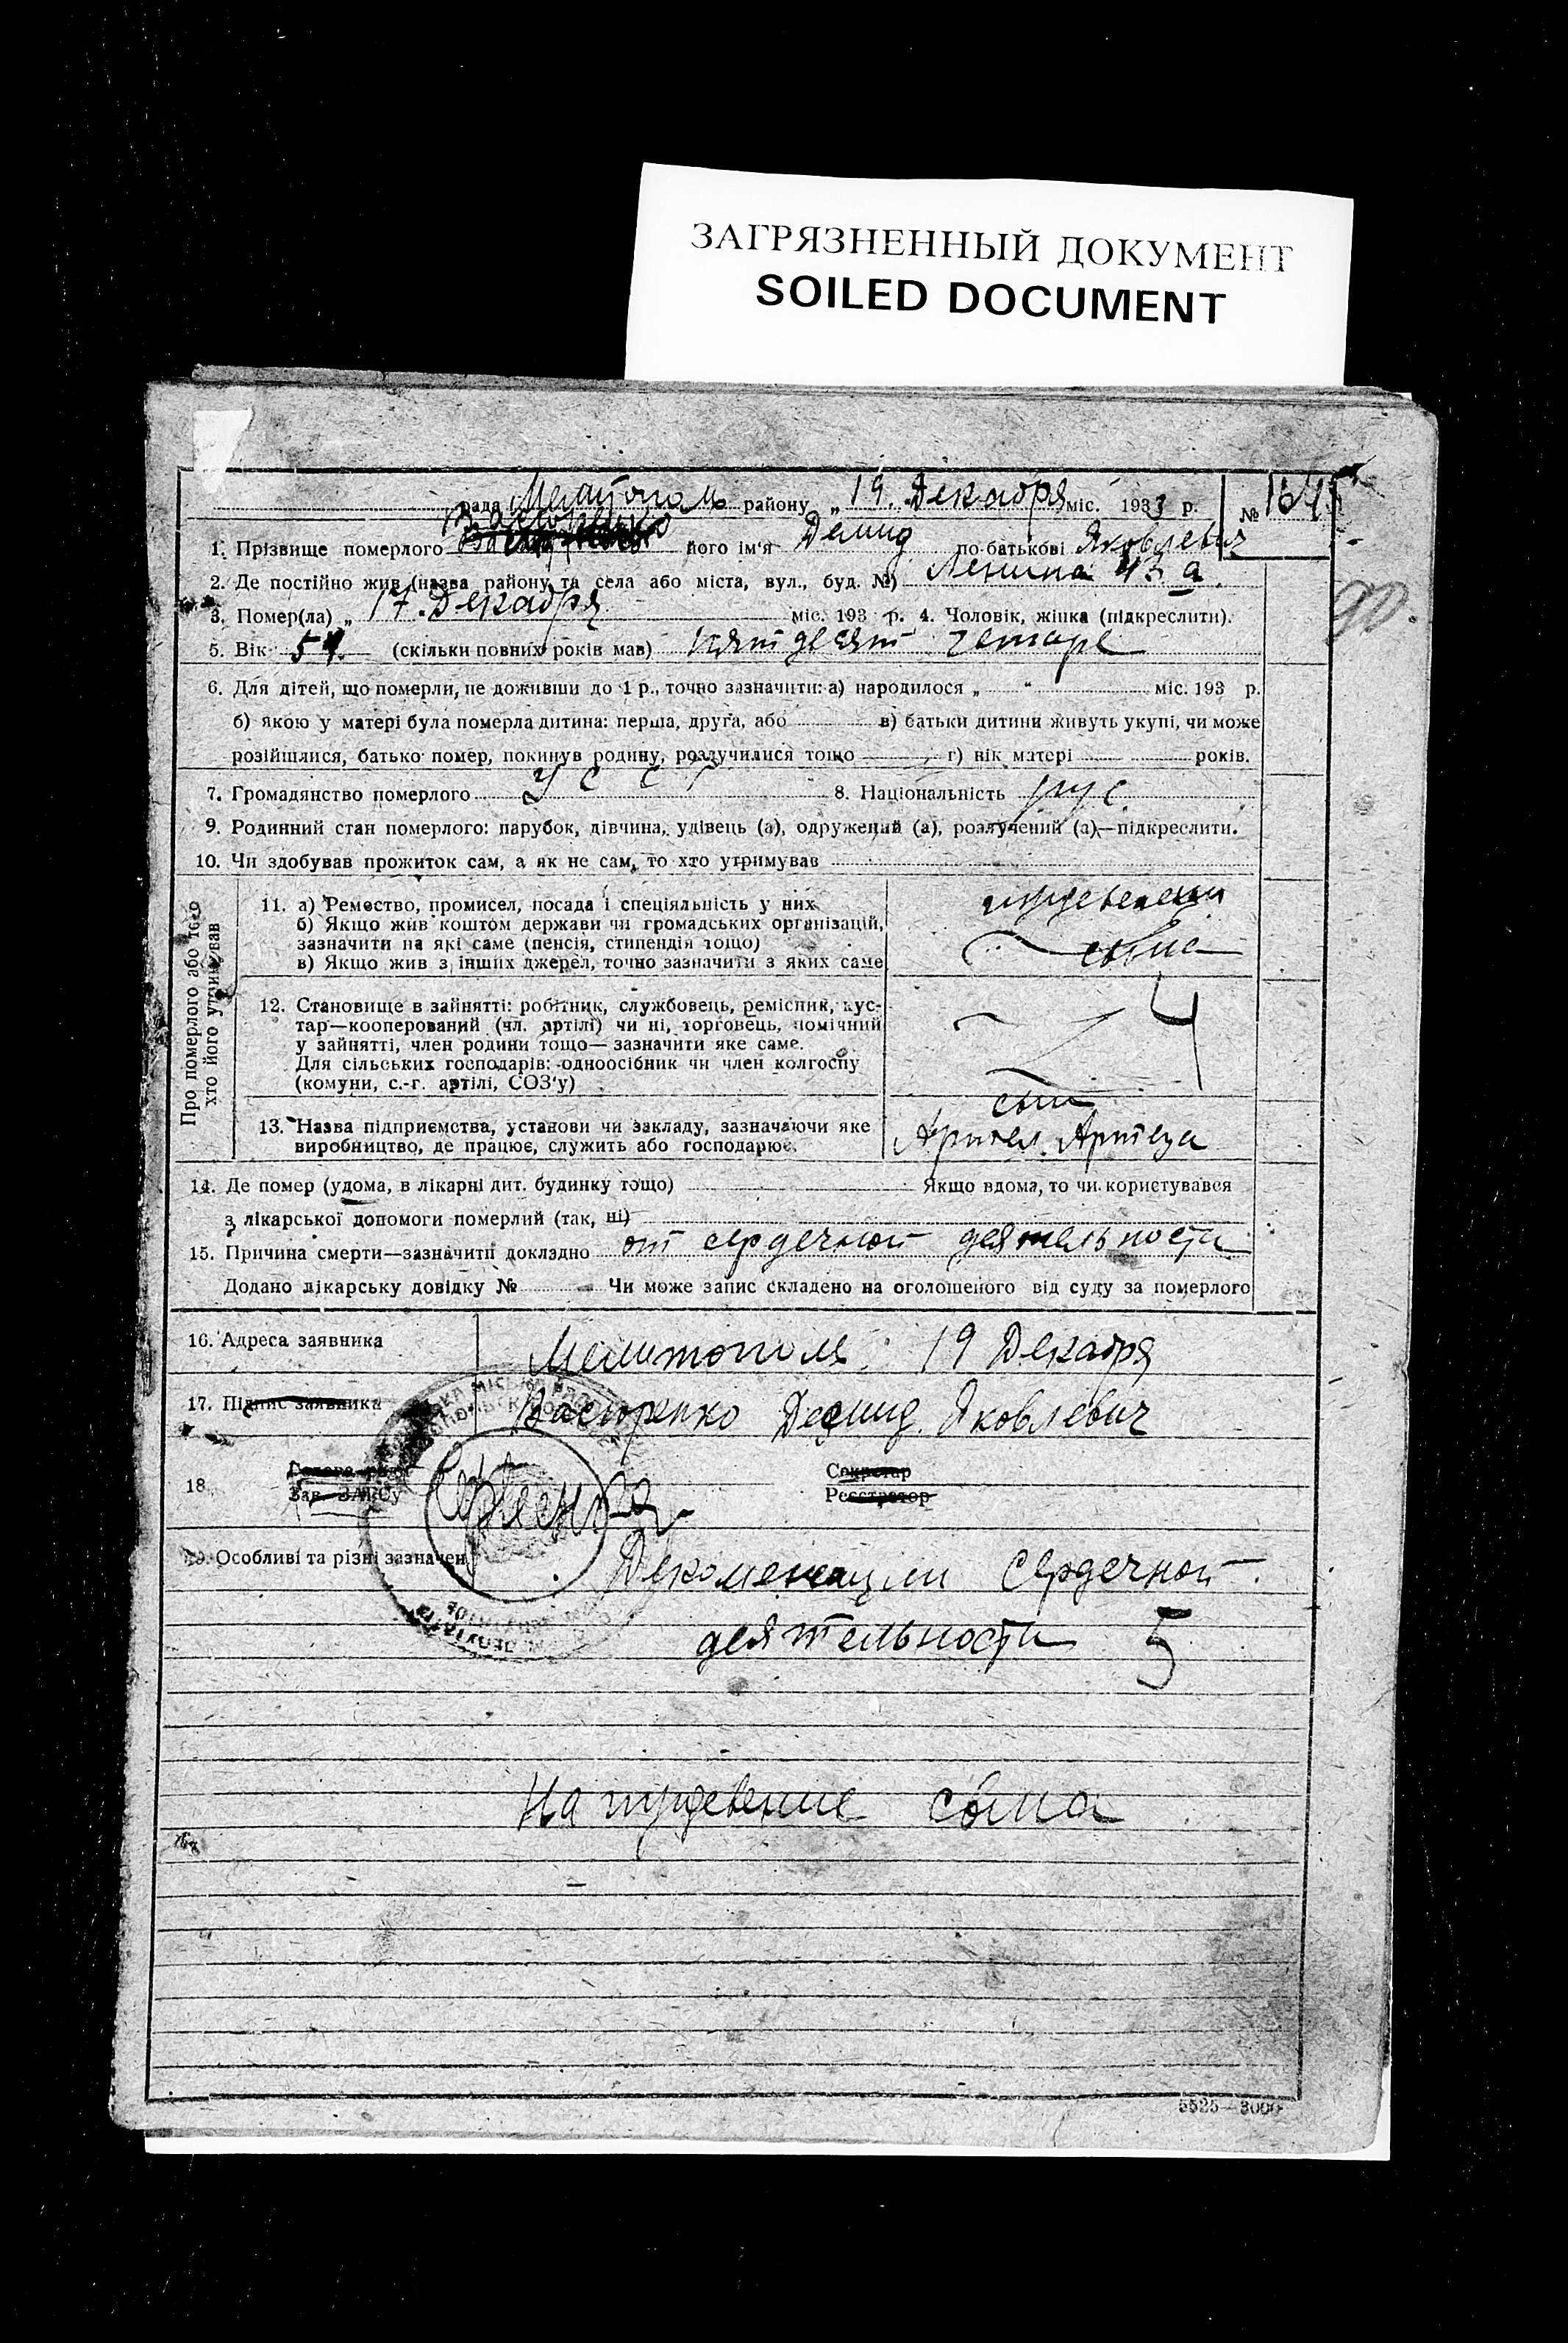 ЗАГРЯЗНЕННЫЙ ДОКУМЕНТ
SOILED DOCUMENT
рада Мелитополь району „ 19. Декабря міс. 1933 р. №
1. Прізвище померлого його ім'я Демид по-батькові Яковлевич
2. Де постійно жив (назва району та села або міста, вул., буд. №) Ленина 43 а.
90.
3. Помер(ла) „ 17. Декабря міс. 193 р. 4. Чоловік, жінка (підкреслити).
5. Вік 54. (скільки повних років мав) пятдесят четоре
6. Для дітей, що померли, не доживши до 1 р., точно зазначити: а) народилося „ “ міс. 193 р.
б) якою у матері була померла дитина: перша, друга, або в) батьки дитини живуть укупі, чи може
розійшлися, батько помер, покинув родину, розлучилися тощо г) вік матері років.
7. Громадянство померлого У С С Р 8. Національність рус
9. Родинний стан померлого: парубок, дівчина, удівець (а), одружений (а), розлучений (а)—підкреслити.
10. Чи здобував прожиток сам, а як не сам, то хто утримував
Про померлого або того
хто його утримував
11. а) Ремество, промисел, посада і спеціяльність у них
б) Якщо жив коштом держави чи громадських організацій,
зазначити на які саме (пенсія, стипендія тощо)
в) Якщо жив з інших джерел, точно зазначити з яких саме
иждевении
сына
12. Становище в зайнятті: робітник, службовець, ремісник, кус-
тар—кооперований (чл. артілі) чи ні, торговець, помічний
у зайнятті, член родини тощо— зазначити яке саме.
Для сільських господарів: одноосібник чи член колгоспу
(комуни, с.-г. артілі, СОЗ'у)
4
13. Назва підприємства, установи чи закладу, зазначаючи яке
виробництво, де працює, служить або господарює.
сын
Артел.
14. Де помер (удома, в лікарні дит. будинку тощо) Якщо вдома, то чи користувався
з лікарської допомоги померлий (так, ні)
15. Причина смерти—зазначити докладно от сердечной деятельности
Додано лікарську довідку № Чи може запис складено на оголошеного від суду за померлого
16. Адреса заявника Мелитополь. 19 Декабря
17. Підпис заявника Васюренко Демид Яковлевич
18. Голова ради Секретар
Зав. ЗАГСу Реєстратор
19. Особливі та різні зазначен.
Сердечной
деятельности 5
На иждевение сына
5525—3000